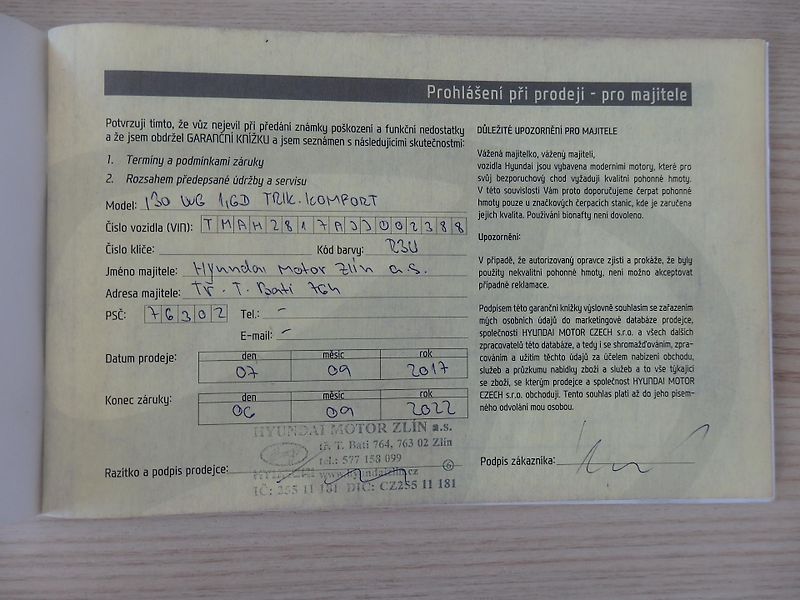 Prohlášení při prodeji - pro majitele
Potvrzuji tímto, že vůz nejevil při předání známky poškození a funkční nedostatky
a že jsem obdržel GARANČNÍ KNÍŽKU a jsem seznámen s následujícími skutečnostmi:
1. Termíny a podmínkami záruky
2. Rozsahem předepsané údržby a servisu
Model: i30 WG 1,6D TRIK.KOMFORT
Číslo vozidla (VIN): TMAH2817AJJ002388
Číslo klíče: Kód barvy: R3U
Jméno majitele: Hyundai Motor Zlín a.s.
Adresa majitele: Tř. T. Bati 764
PSČ: 76302 Tel.: -
E-mail: -
Datum prodeje: den měsíc rok
07 09 2017
Konec záruky: den měsíc rok
06 09 2022
HYUNDAI MOTOR ZLÍN a.s.
tř. T. Bati 764, 763 02 Zlín
tel.: 577 158 099
www.hyundaizlin.cz
IČ: 255 11 181 DIČ: CZ255 11 181
Razítko a podpis prodejce:
DŮLEŽITÉ UPOZORNĚNÍ PRO MAJITELE
Vážená majitelko, vážený majiteli,
vozidla Hyundai jsou vybavena moderními motory, které pro
svůj bezporuchový chod vyžadují kvalitní pohonné hmoty.
V této souvislosti Vám proto doporučujeme čerpat pohonné
hmoty pouze u značkových čerpacích stanic, kde je zaručena
jejich kvalita. Používání bionafty není dovoleno.
Upozornění:
V případě, že autorizovaný opravce zjistí a prokáže, že byly
použity nekvalitní pohonné hmoty, není možno akceptovat
případné reklamace.
Podpisem této garanční knížky výslovně souhlasím se zařazením
mých osobních údajů do marketingové databáze prodejce,
společnosti HYUNDAI MOTOR CZECH s.r.o. a všech dalších
zpracovatelů této databáze, a tedy i se shromažďováním, zpra-
cováním a užitím těchto údajů za účelem nabízení obchodu,
služeb a průzkumu nabídky zboží a služeb a to vše týkající
se zboží, se kterým prodejce a společnost HYUNDAI MOTOR
CZECH s.r.o. obchodují. Tento souhlas platí až do jeho písem-
ného odvolání mou osobou.
Podpis zákazníka: